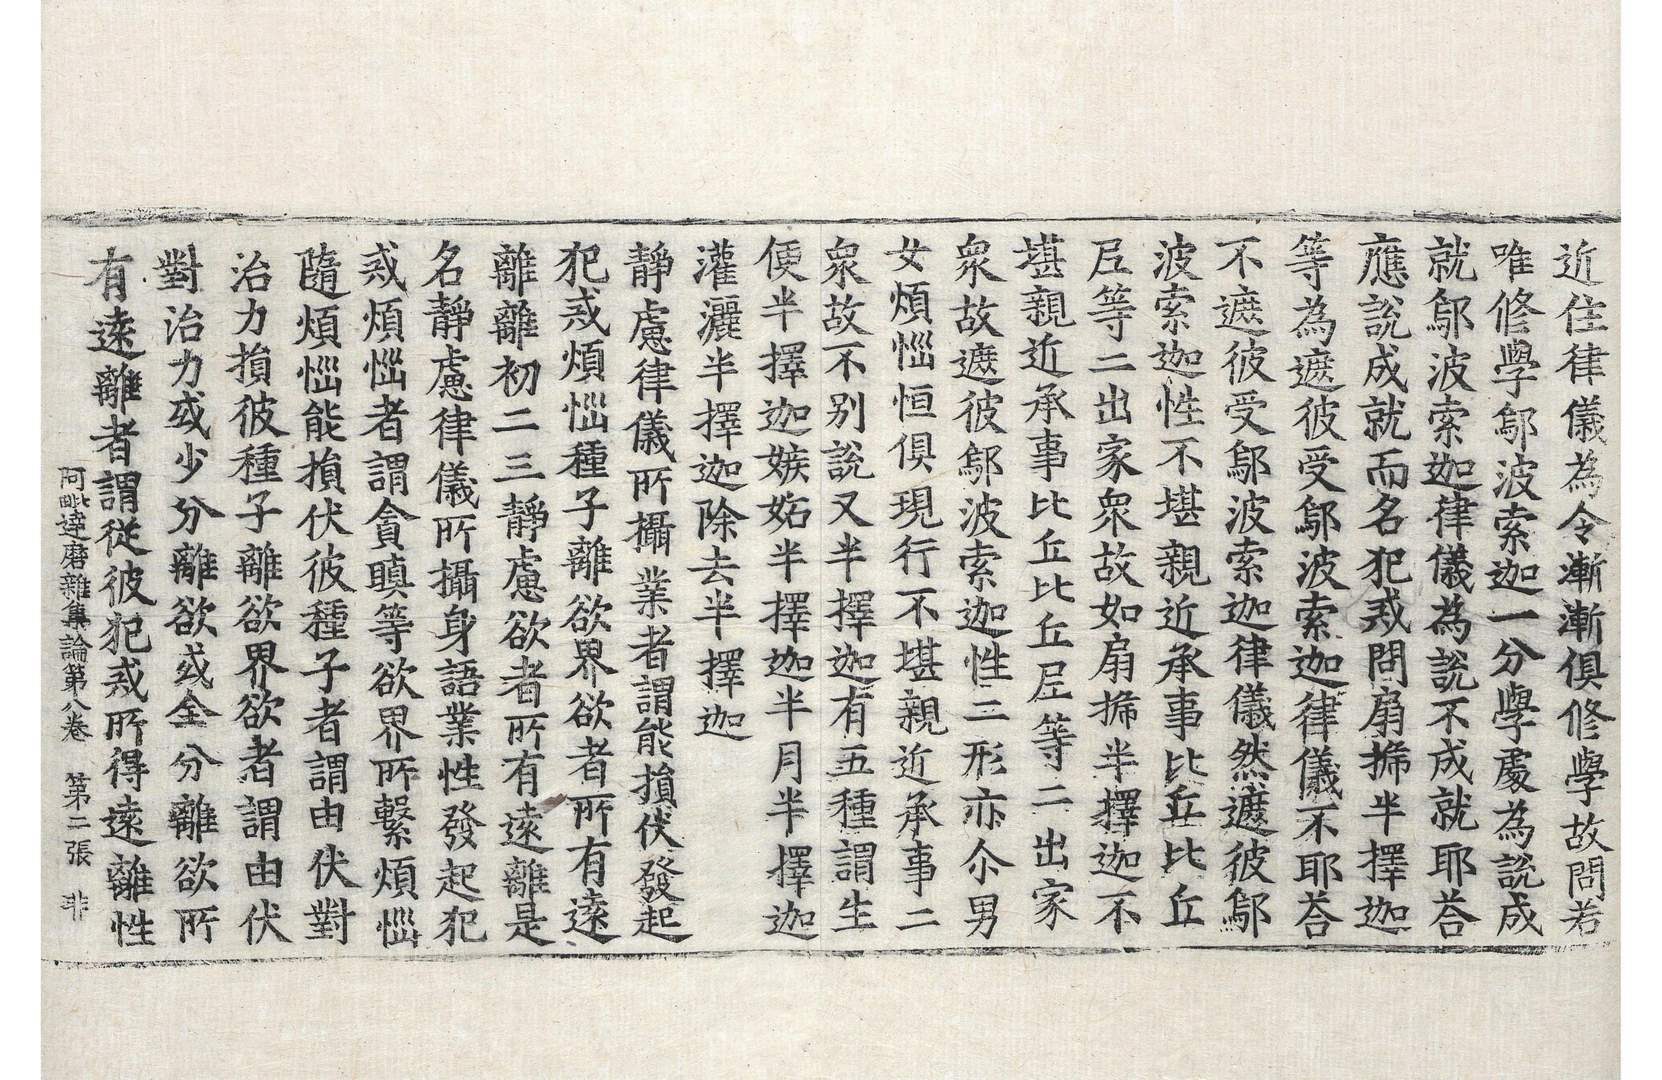 近住律儀為令漸漸俱修學故問若
唯修學鄔波索迦一分學處為說成
就鄔波索迦律儀為說不成就耶荅
應說成就而名犯戒問扇搋半擇迦
等為遮彼受鄔波索迦律儀不耶荅
不遮彼受鄔波索迦律儀然遮彼鄔
波索迦性不堪親近承事比丘比丘
尼等二出家衆故如扇搋半擇迦不
堪親近承事比丘比丘尼等二出家
衆故遮彼鄔波索迦性二形亦尒男
女煩惱恒俱現行不堪親近承事二
衆故不別說又半擇迦有五種謂生
便半擇迦嫉妬半擇迦半月半擇迦
灌灑半擇迦除去半擇迦
靜慮律儀所攝業者謂能損伏發起
犯戒煩惱種子離欲界欲者所有遠
離離初二三靜慮欲者所有遠離是
名靜慮律儀所攝身語業性發起犯
戒煩惱者謂貪瞋等欲界所繫煩惱
隨煩惱能損伏彼種子者謂由伏對
治力損彼種子離欲界欲者謂由伏
對治力或少分離欲或全分離欲所
有遠離者謂從彼犯戒所得遠離性
阿毗達磨雜集論第八卷　第二張　非